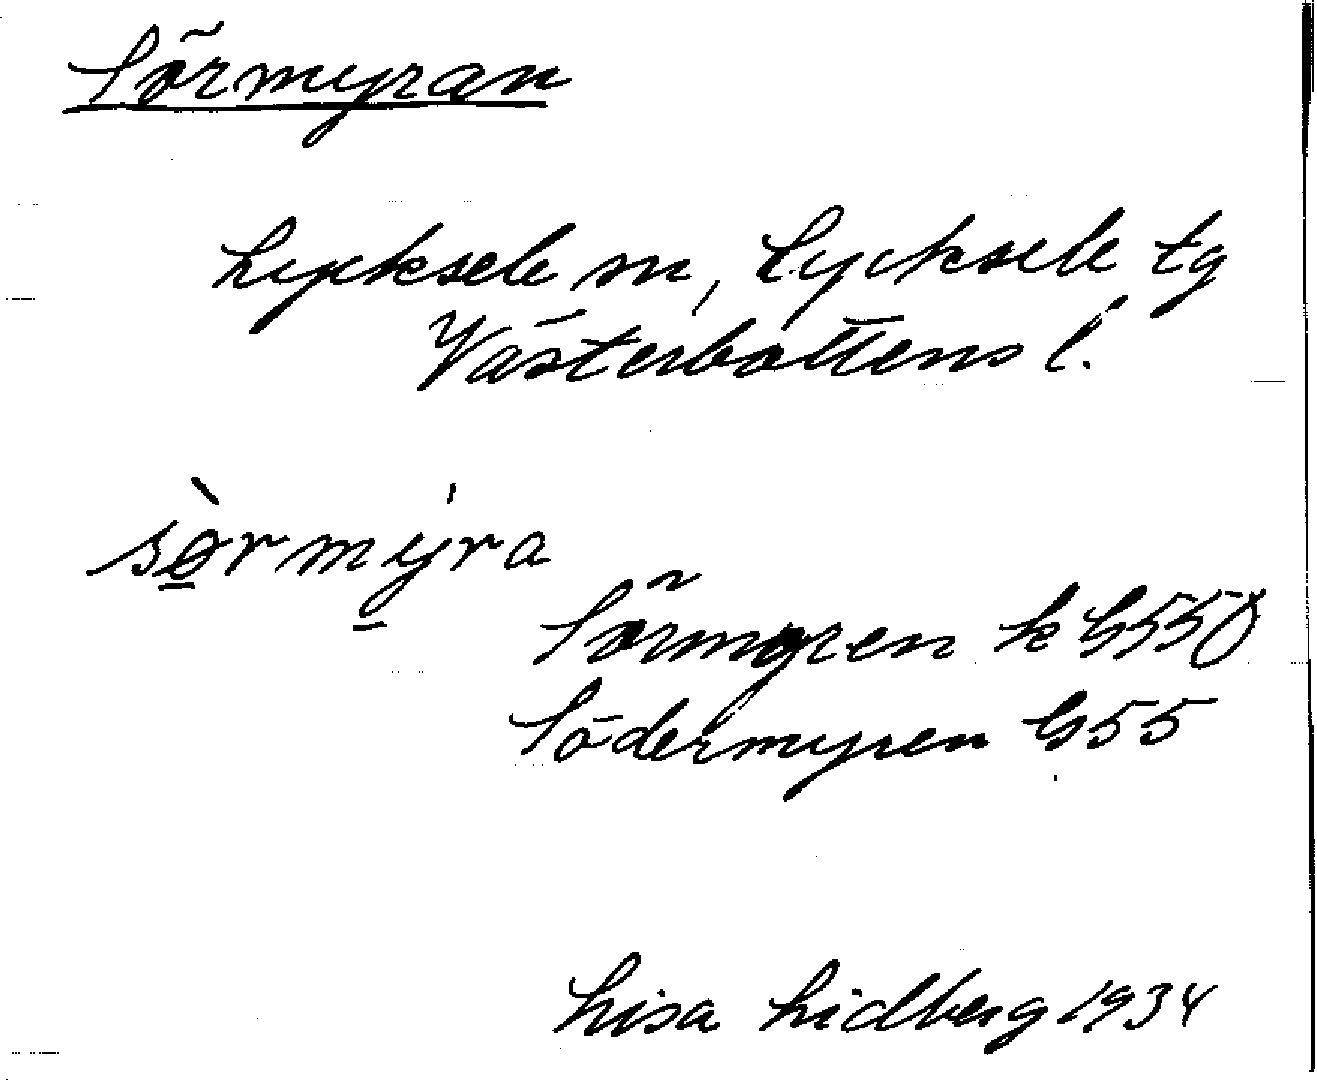 Sörmyran
Lycksele sn, Lycksele tg
Västerbottens l.
sørmyra
Sörmyren k G55Ö
Södermyren G55
Lisa Lidberg 1934